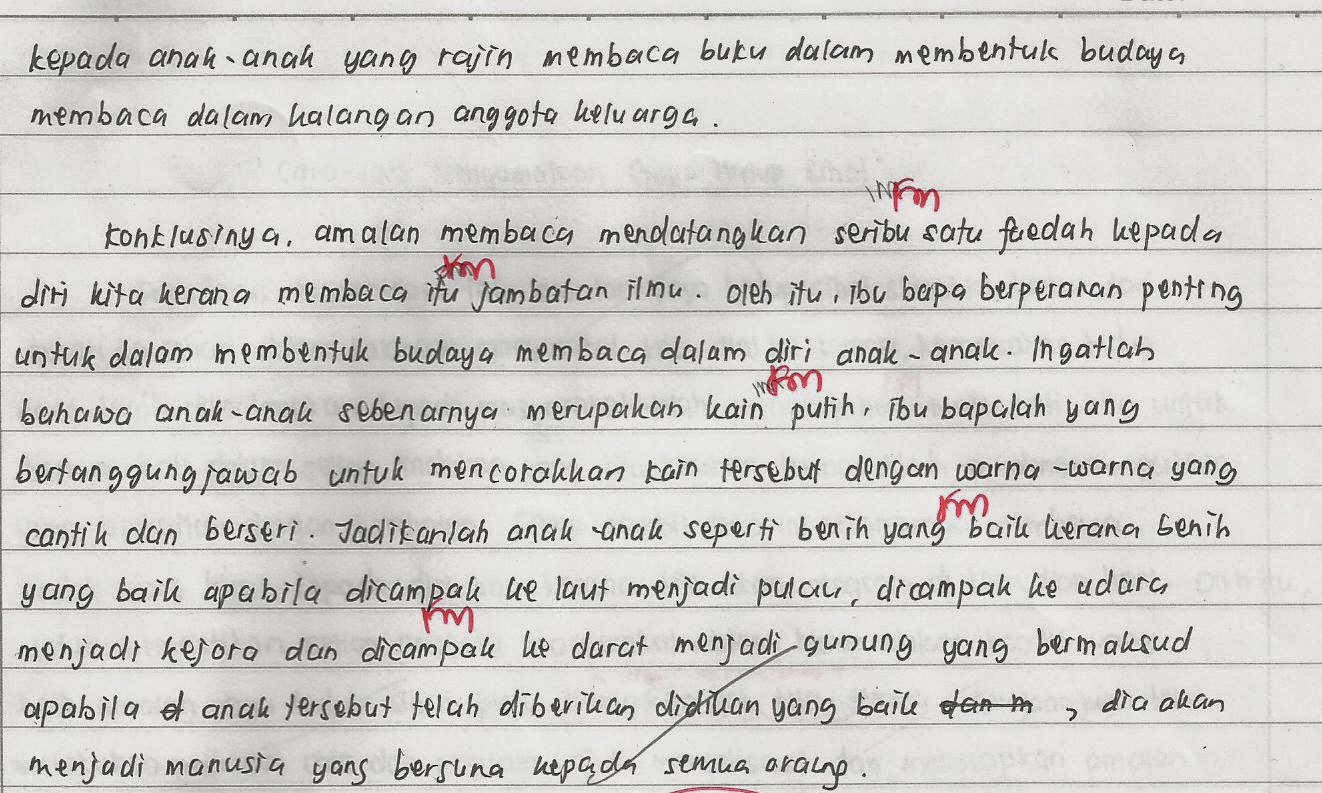 kepada anak-anak yang rajin membaca buku dalam membentuk budaya
membaca dalam kalangan anggota keluarga.
Konklusinya, amalan membaca mendatangkan seribu satu faedah kepada
diri kita kerana membaca itu jambatan ilmu. Oleh itu, ibu bapa berperanan penting
untuk dalam membentuk budaya membaca dalam diri anak-anak. Ingatlah
bahawa anak-anak sebenarnya merupakan kain putih, ibu bapalah yang
bertanggungjawab untuk mencorakkan kain tersebut dengan warna-warna yang
cantik dan berseri. Jadikanlah anak-anak seperti benih yang baik kerana benih
yang baik apabila dicampak ke laut menjadi pulau, dicampak ke udara
menjadi kejora dan dicampak ke darat menjadi gunung yang bermaksud
apabila anak tersebut telah diberikan didikan yang baik dan m, dia akan
menjadi manusia yang berguna kepada semua orang.